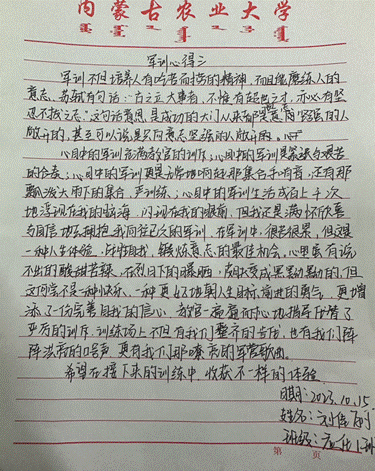 内蒙古农业大学
军训心得三
军训不但培养人有吃苦而捞的精神，而且能磨练人的
意志，苏轼有句话："古之立大事者，不惟有超世之才，亦必有坚
忍不拔之志"这句话意思是成功的大门从来都是向意志坚强的人
敞开的，甚至可以说是只向意志坚强的人敞开的。
心目中的军训充满教官的训斥；心目中的军训是紧张与艰苦
的合奏；心目中的军训更是席场响起那集合手哨音，还有那
飘泼大雨下的集合，严训练；心目中的军训生活成百上千次
地浮现在我的脑海，闪现在我的眼前，但我还是满怀欣喜
与自信地去拥抱我向往已久的军训，在军训中，很苦很累，但这是
一种人生体验，战胜自我，锻炼意志的最佳机会，心里虽有说
不出的酸甜苦辣，在烈日下的曝晒，皮肤变成黑黝黝的，但
这何尝不是一种快乐，一种更好地朝人生目标前进的勇气，更增
添了一份完善自我的信心，教官一遍遍耐心地指导代替了
严厉的训斥，训练场上不但有我们整齐的步伐，也有我们阵
阵洪亮的口号声，更有我们那嘹亮的军营歌曲。
希望在接下来的训练中，收获不一样的体验
日期：2023.10.15
姓名：刘
班级：
第 页